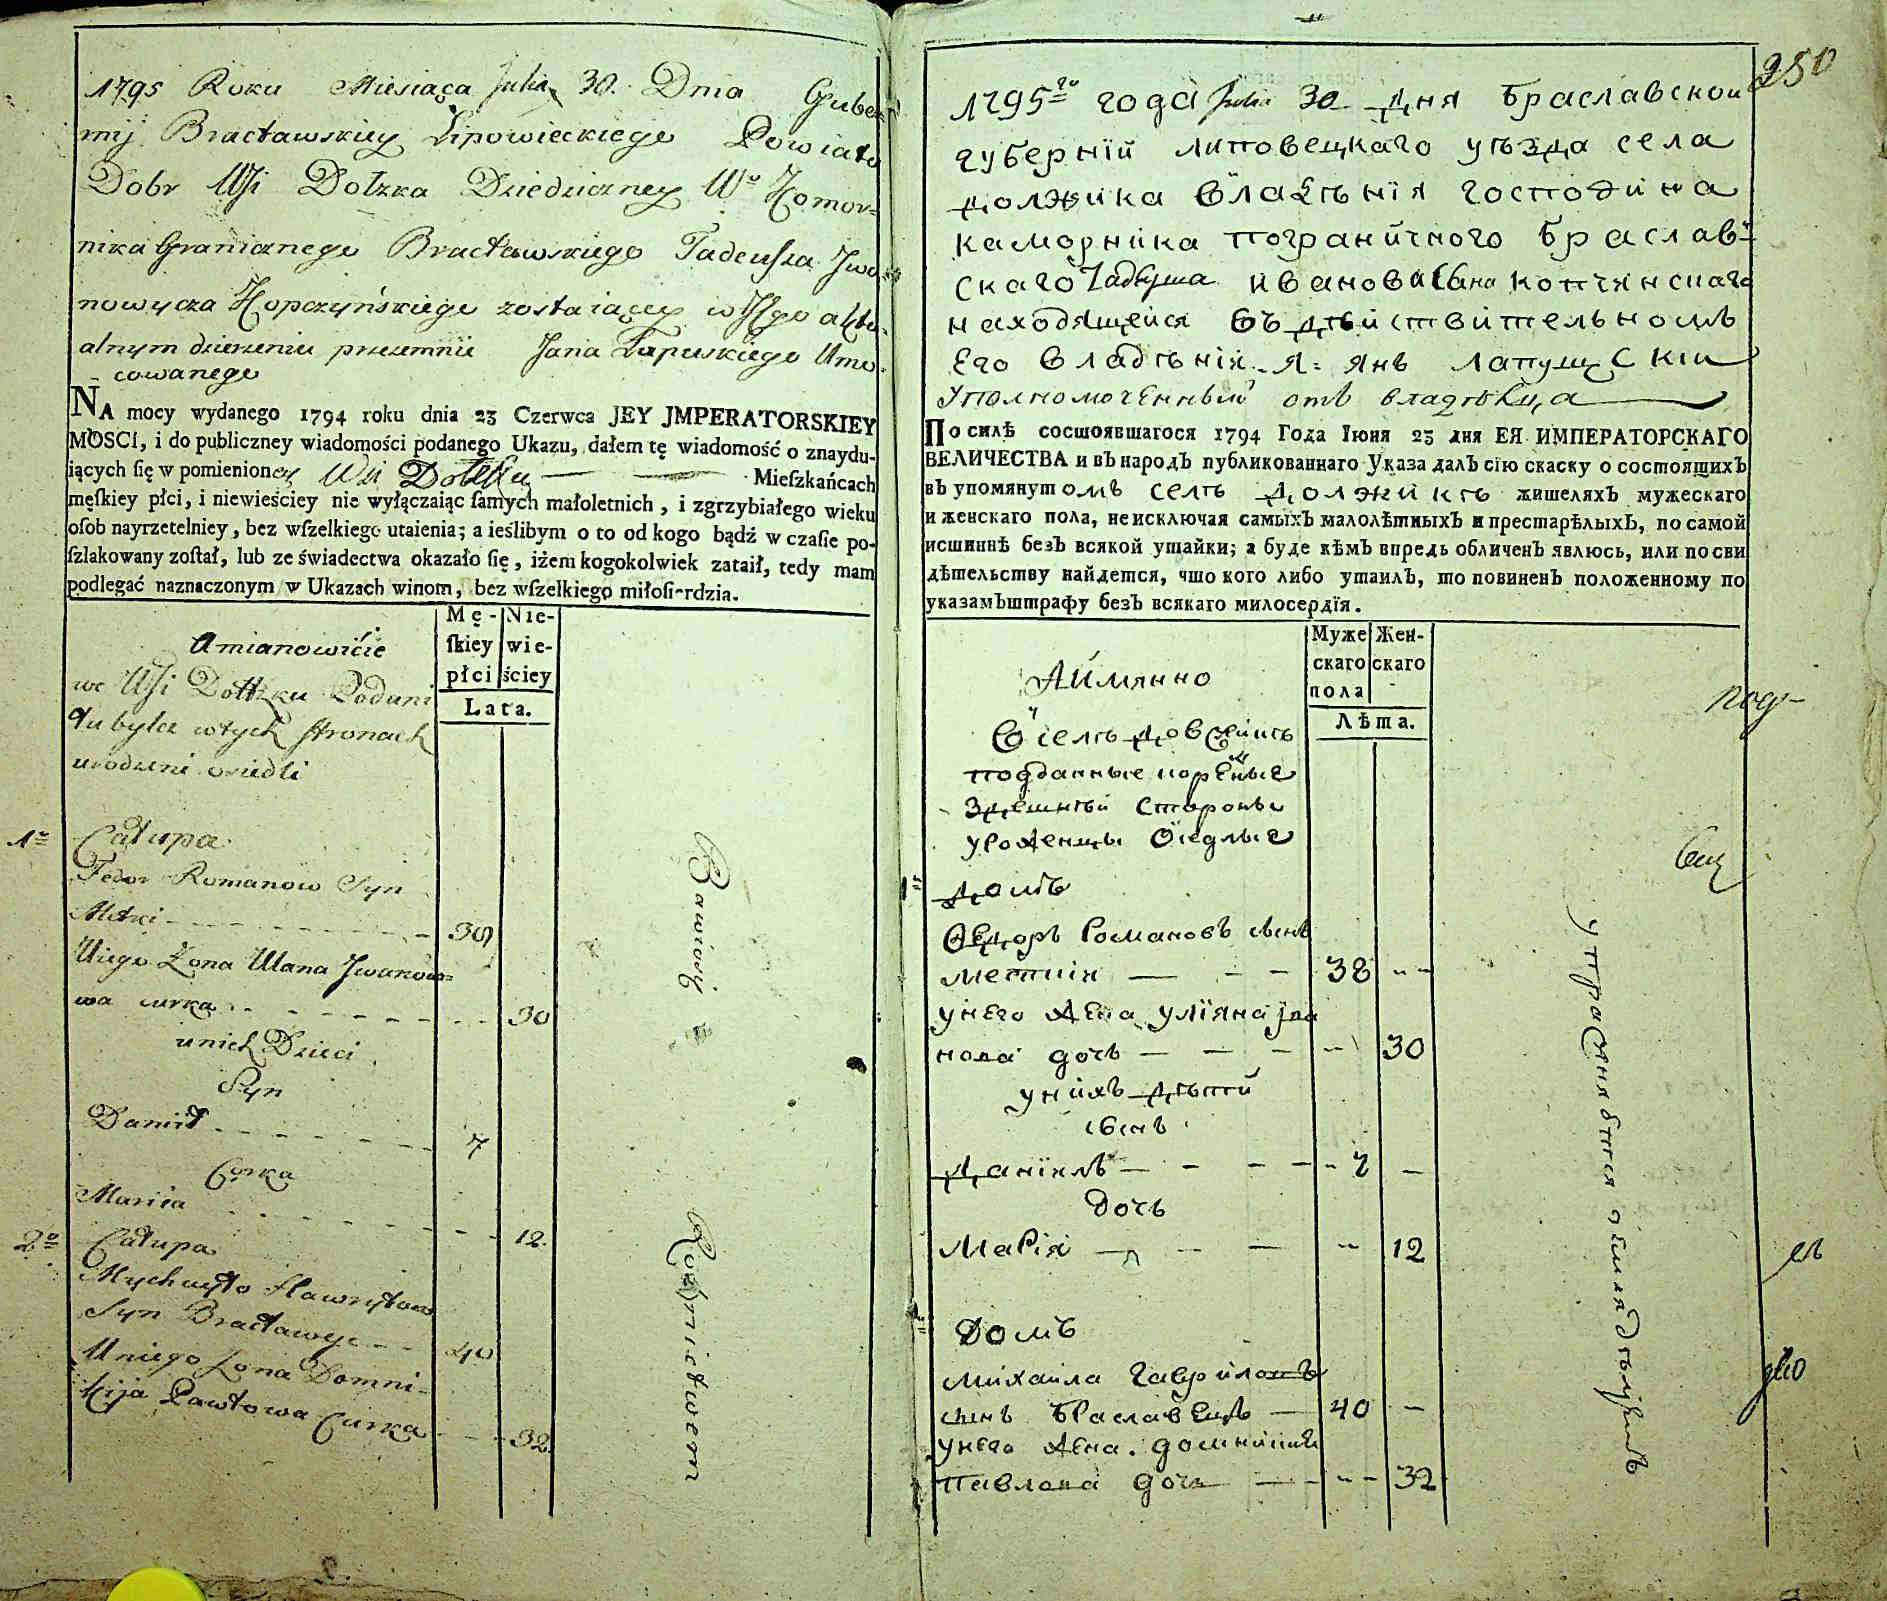 1795 Roku Miesiąca Julia 30. Dnia Guber
nij Bracławskiey Lipowieckiego Powiatu
Dobr Wsi Dołzka Dziedziczney Wo Komor=
nika Granicznego Bracławskiego Tadeusza Jwa
nowycza Kopczyńskiego zostaiącey w Jego aktu=
alnym dzierzeniu przezemnie Jana Łapuskiego Umo=
cowanego
NA mocy wydanego 1794 roku dnia 23 Czerwca JEY JMPERATORSKIEY
MOSCI, i do publiczney wiadomości podanego Ukazu, dałem tę wiadomość o znaydu-
iących ſię w pomienioney Wsi Dołzku Mieſzkańcach
męſkiey płci, i niewieściey nie wyłączaiąc ſamych małoletnich, i zgrzybiałego wieku
oſob nayrzetelniey, bez wſzelkiego utaienia; a ieślibym o to od kogo bądź w czaſie po-
ſzlakowany zoſtał, lub ze świadectwa okazało ſię, iżem kogokolwiek zataił, tedy mam
podlegać naznaczonym w Ukazach winom, bez wſzelkiego miłoſierdzia.
Amianowicie
Mę-
ſkiey
płci
Nie-
wie-
ściey
Lata.
we Wsi Dołżku Podani
tubylce wtych stronach
urodzeni osiedli
1o Całupa
Fedor Romanow Syn
Metki 38
Uiego Żona Ulana Jwanow=
wa curka 30
unich Dzieci
Syn
Danił 7
Corka
Mariia 12
2o Całupa
Mychayło Hawryłow
Syn Bracławyc 40
Uniego Żona Domni-
kija Pawłowa Curka 32
Bawiący
Rolnictwem
250
1795го года Julii 30 дня Браславской
губерніи липовецкаго уѣзда села
должика владѣнія господина
каморника пограничного Браслав=
скаго Тадеуша ивановича сына копчинскаго
находящейся въ дѣйствительномъ
Его владѣніи Я: янъ лапушскій
Уполномоченный отъ владѣльца
По силѣ состоявшагося 1794 Года Іюня 23 дня ЕЯ ИМПЕРАТОРСКАГО
ВЕЛИЧЕСТВА и въ народъ публикованнаго Указа далъ сію скаску о состоящихъ
въ упомянутомъ селѣ должикѣ жителяхъ мужескаго
и женскаго пола, не исключая самыхъ малолѣтныхъ и престарѣлыхъ, по самой
истиннѣ безъ всякой утайки; а буде кѣмъ впредь обличенъ явлюсь, или по сви
дѣтельству найдется, что кого либо утаилъ, то повиненъ положенному по
указамъ штрафу безъ всякаго милосердія.
Аимянно
Муже
скаго
пола
Жен-
скаго
Лѣта.
подданные
здешнѣй стороны
уроженцы оседлые
1 домъ
Федоръ Романовъ сынъ
меткин 38
унего жена улияна ива
нова дочь 30
унихъ дѣтй
сынъ
данїилъ 7
дочь
Марія 12
2 домъ
михаила гавриловъ
сынъ браславецъ 40
унего жена домникия
павлова дочь 32
упражняются земледѣлиемъ